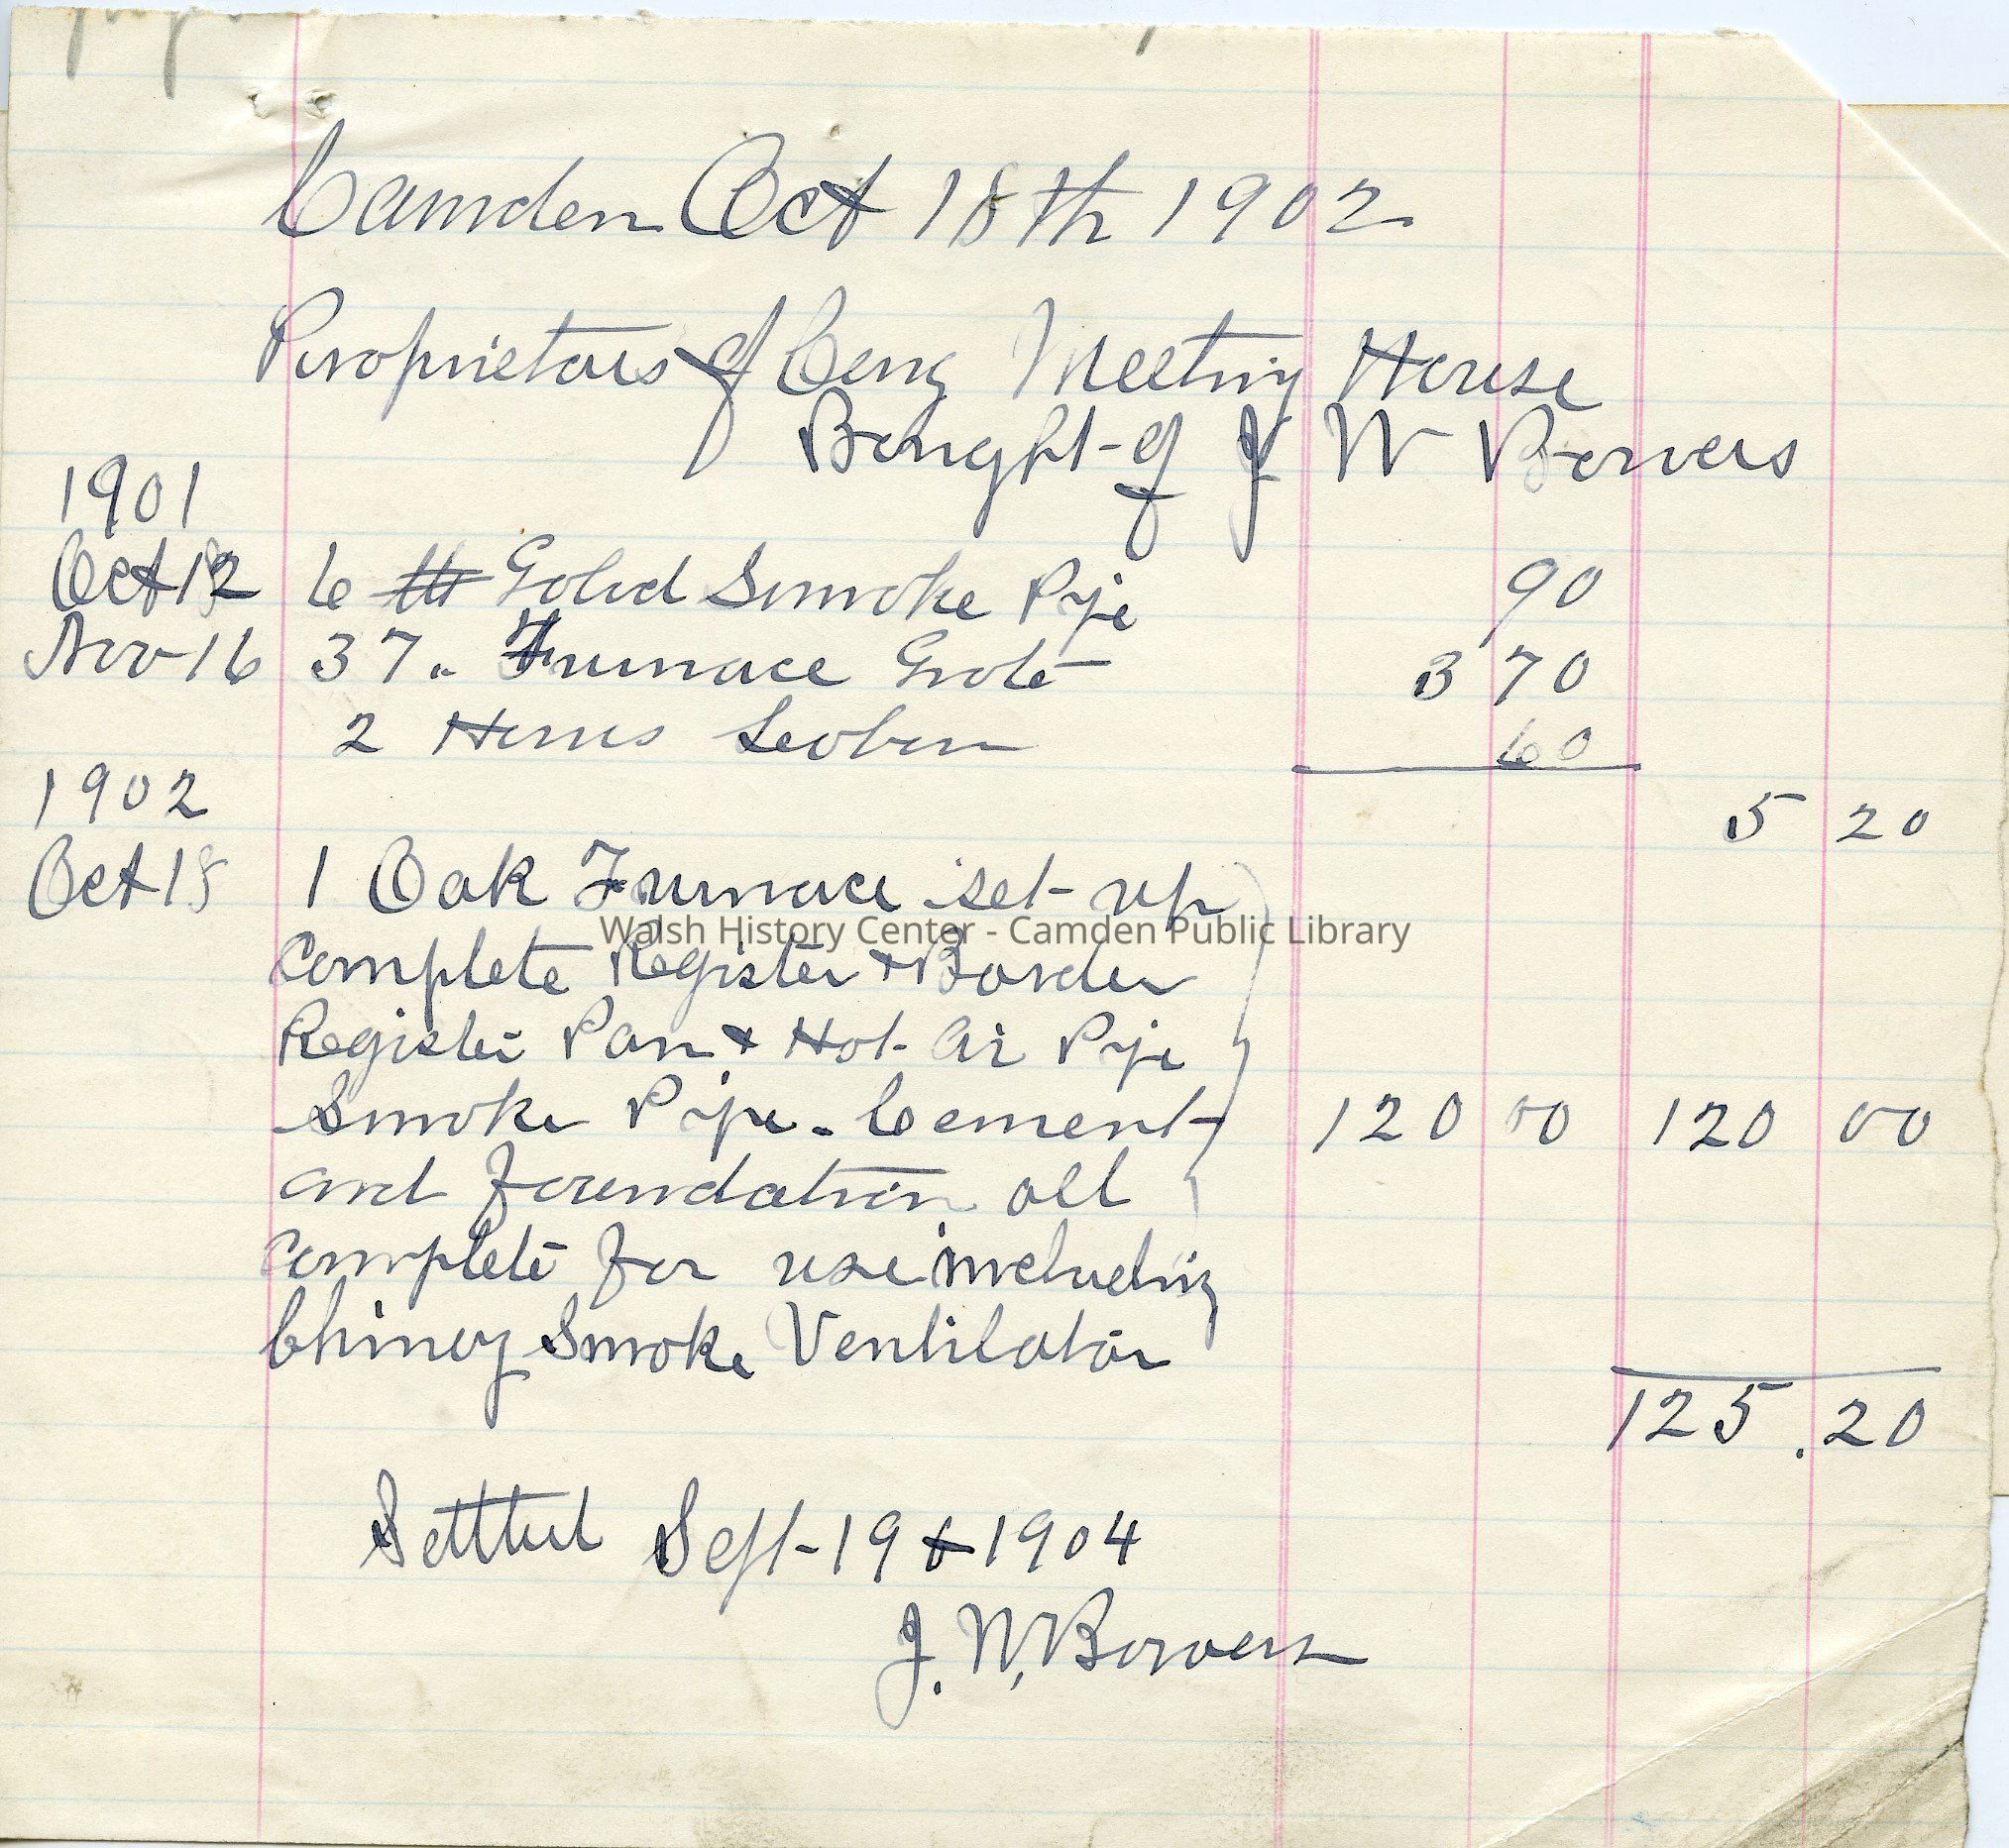 Camden Oct 18th 1902
Proprietors of Cong Meeting House
Bought of J W Bowers
1901
Oct 12 6 lb Golvd Smoke Pipe 90
Nov 16 37 " Furnace Grate 3 70
2 Hours Labor 60
1902 5 20
Oct 18 1 Oak Furnace set up
Walsh History Center - Camden Public Library
Complete Register & Border
Register Pan & Hot Air Pipe
Smoke Pipe. Cement 120 00 120 00
and foundation all
complete for use including
Chimey Smoke Ventilator
125.20
Setttled Sept 19 1904
J. W. Bowers